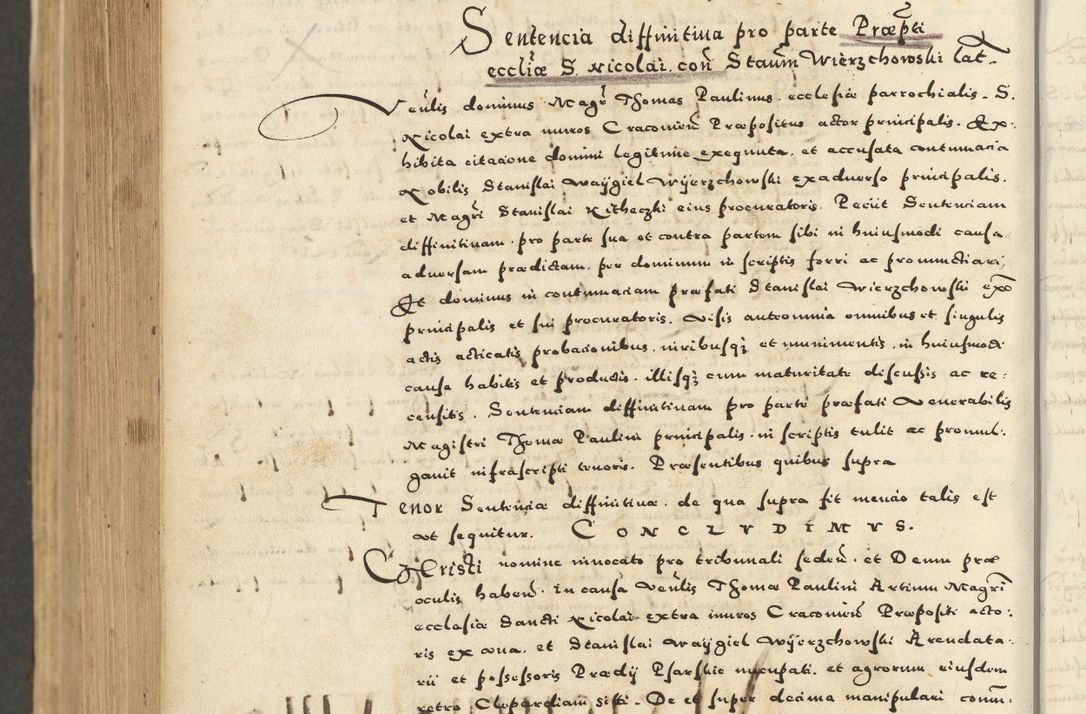 Sentencia diffinitiua pro parte Præpti
eccliæ S. Nicolai. con Staum Wierzchowski lat.
Venlis dominus Magr Thomas Paulinus. ecclesiæ parrochialis. S.
Nicolai extra muros Cracouien Præpositus actor principalis. Ex:
hibita citacione domini legitime exequuta. et accusata contumacia
Nobilis Stanislai Waÿgiel Wÿerzchowski ex aduerso principalis.
et Magri Stanislai Kitheczki eius procuratoris. Peciit Sentenciam
diffinitiuam. pro parte sua et contra partem sibi in huiusmodi causa
aduersam prædictam. per dominum in scriptis ferri ac pronunctiari,
Et dominus in contumaciam præfati Stanislai Wierzchowski exo
principalis et sui procuratoris. Visis ante omnia omnibus et singulis
actis acticatis probacionibus. iuribusq; et munimentis. in huiusmodi
causa habitis et productis. illisq; cum maturitate discussis ac re:
censitis. Sentenciam diffinitiuam pro parte præfati Venerabilis
Magistri Thomæ Paulini principalis. in scriptis tulit ac promul:
gauit infrascripti tenoris. Præsentibus quibus supra
Tenor Sentenciæ diffinitiuæ. de qua supra fit mencio talis est
vt sequitur. CONCLVDIMVS.
Christi nomine inuocato pro tribunali seden. et Deum præ
oculis haben. in causa Venlis Thomæ Paulini Artium Magri
ecclesiæ Sancti Nicolai extra muros Cracouien Præpositi acto:
ris ex vna. et Stanislai Waÿgiel Wÿerzchowski Arendata:
rii et possessoris Prædij Psarskie nuncupati. et agrorum eiusdem
retro Clepardiam siti. De et super decima manipulari